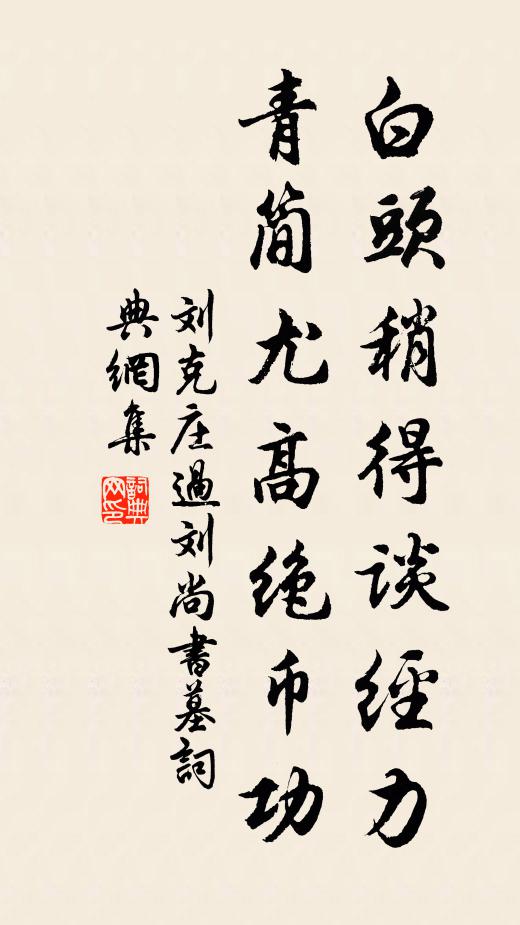 白頭稍得談經力
青简尤高绝币功
刘克庄過刘尚書墓詞
典網集
詞典
网印